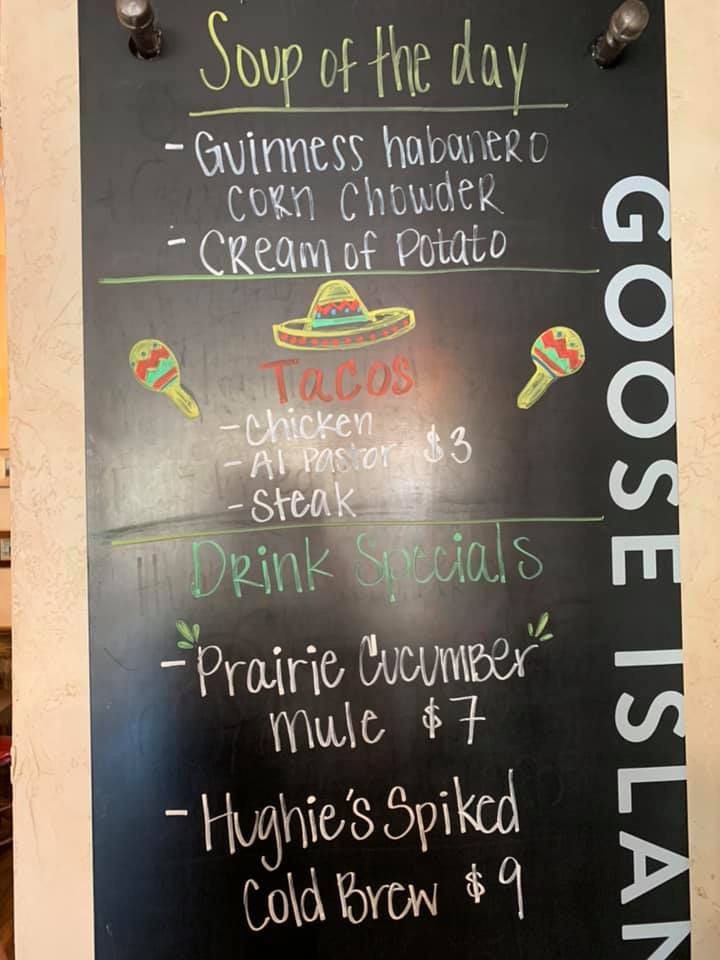 Soup of the day
- Guinness habanero
corn chowder
- Cream of Potato
Tacos
- Chicken
- Al Pastor $3
- Steak
Drink Specials
- Prairie Cucumber
Mule $7
- Hughie's Spiked
Cold Brew $9
GOOSE ISLAN